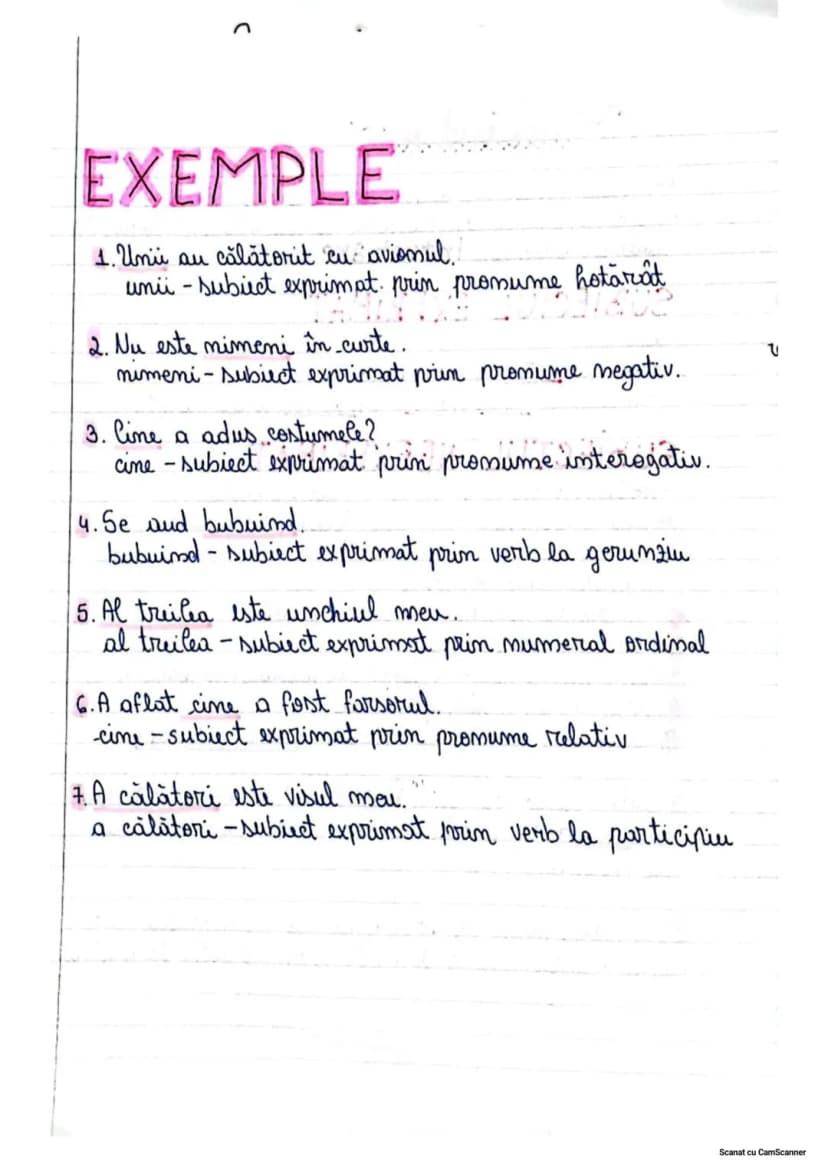 EXEMPLE
1. Unii au călătorit cu avionul.
unii - subiect exprimat prin pronume hotărât
2. Nu este nimeni în curte.
nimeni - subiect exprimat prin pronume negativ.
3. Cine a adus costumele?
cine - subiect exprimat prin pronume interogativ.
4. Se aud bubuind.
bubuind - subiect exprimat prin verb la gerunziu
5. Al treilea este unchiul meu.
al treilea - subiect exprimat prin numeral ordinal
6. A aflat cine a fost farsorul.
cine - subiect exprimat prin pronume relativ
7. A călători este visul meu.
a călători - subiect exprimat prin verb la participiu
Scanat cu CamScanner